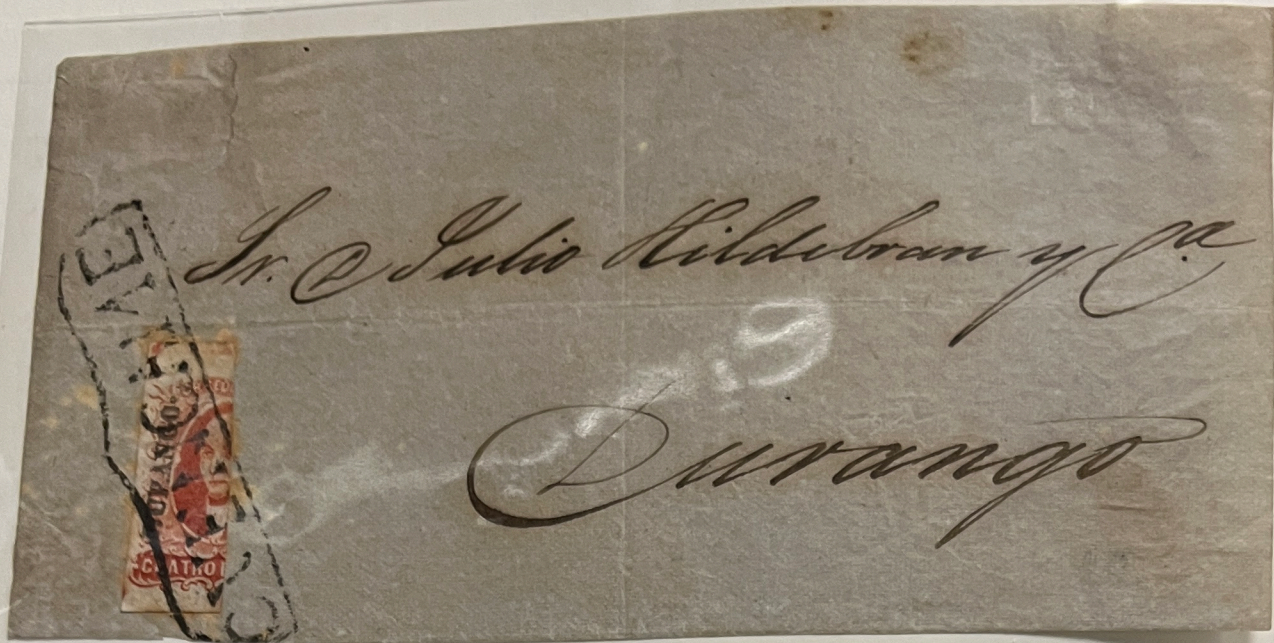 Sr. D Julio Hildebran y Ca.
Durango
DURANGO
CUATRO